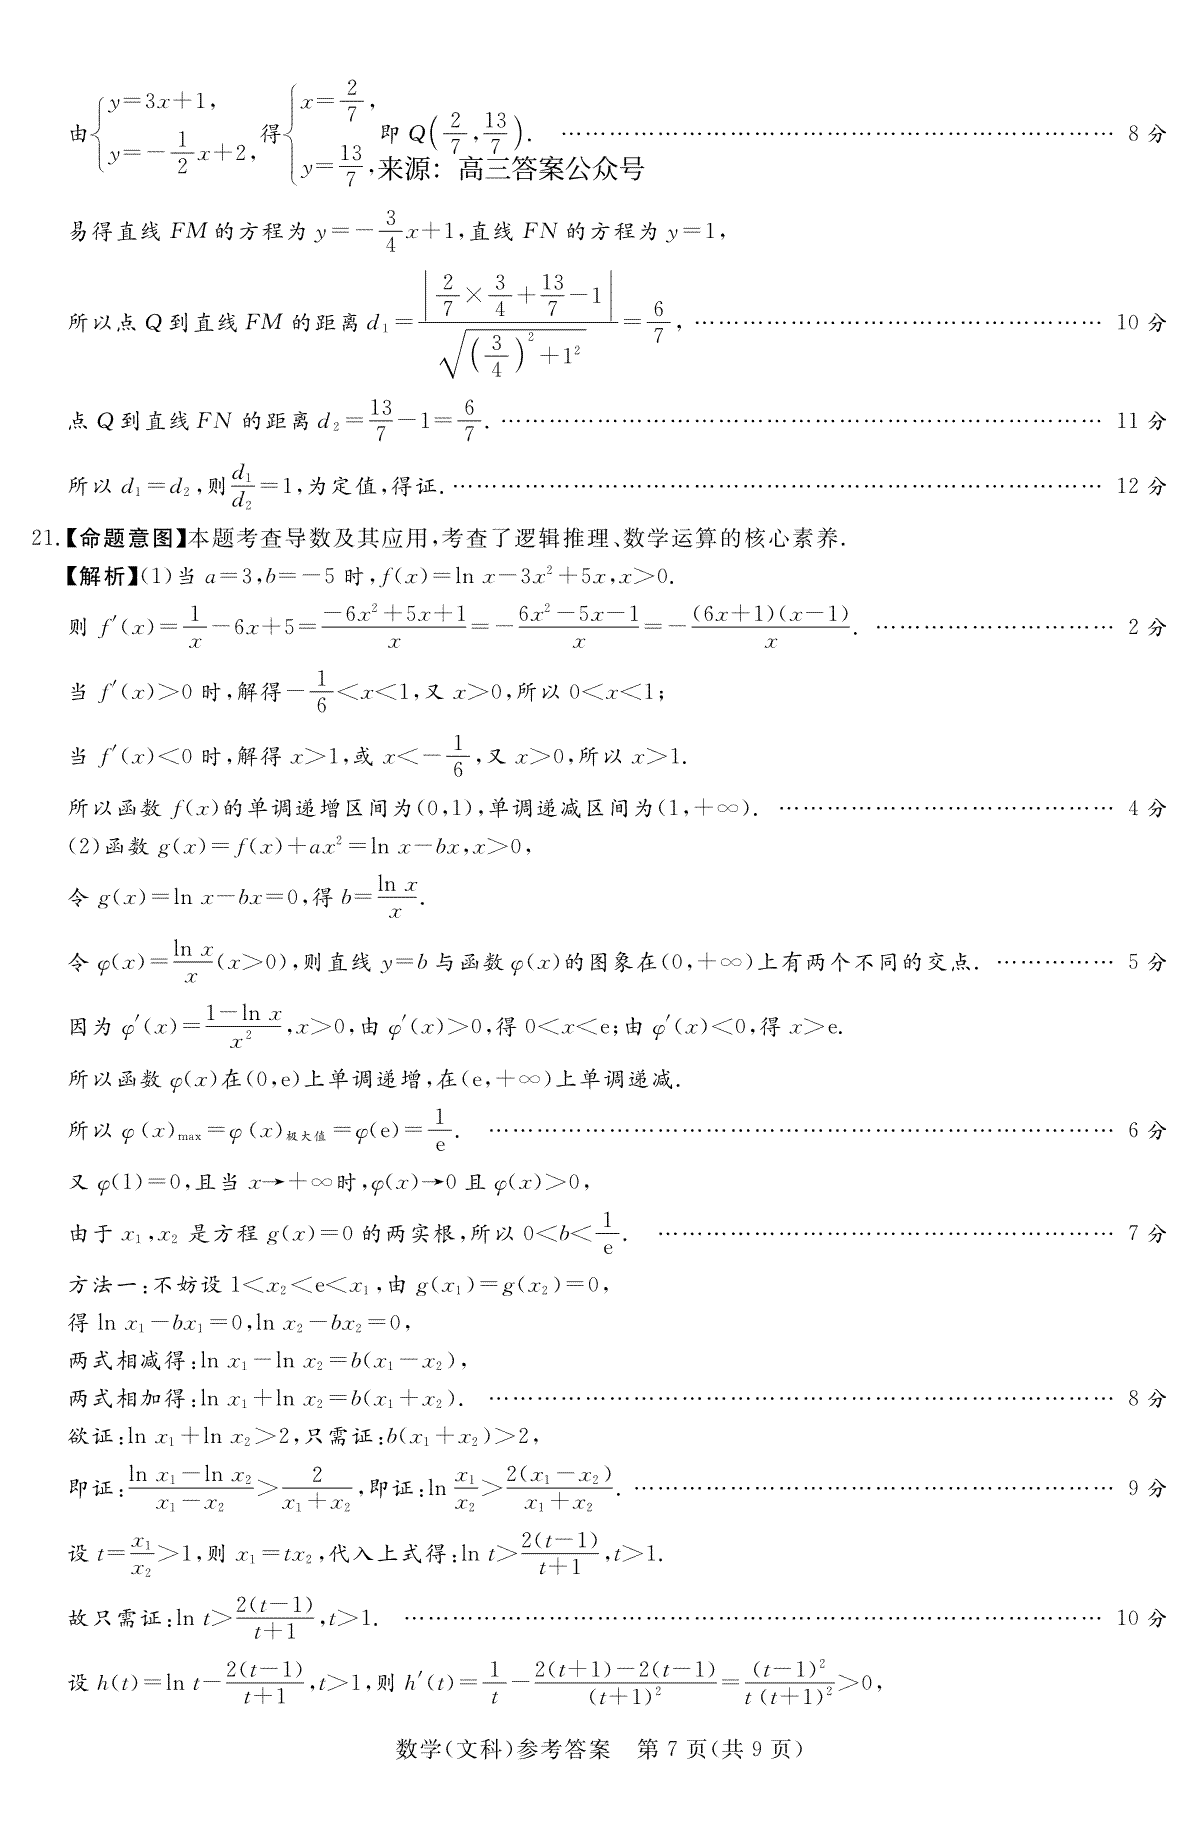 由{y=3x+1, y=-1/2x+2, 得{x=2/7, y=13/7, 即 Q(2/7,13/7). …………………………………………………… 8 分
来源：高三答案公众号
易得直线 FM 的方程为 y=-3/4x+1,直线 FN 的方程为 y=1,
所以点 Q 到直线 FM 的距离 d₁=|2/7×3/4+13/7-1|/√((3/4)²+1²)=6/7, ………………………………………… 10 分
点 Q 到直线 FN 的距离 d₂=13/7-1=6/7. ………………………………………………………… 11 分
所以 d₁=d₂,则d₁/d₂=1,为定值,得证. …………………………………………………………… 12 分
21.【命题意图】本题考查导数及其应用,考查了逻辑推理、数学运算的核心素养.
【解析】(1)当 a=3,b=-5 时,f(x)=ln x-3x²+5x,x>0.
则 f′(x)=1/x-6x+5=(-6x²+5x+1)/x=-(6x²-5x-1)/x=-(6x+1)(x-1)/x. ………………………… 2 分
当 f′(x)>0 时,解得-1/6<x<1,又 x>0,所以 0<x<1;
当 f′(x)<0 时,解得 x>1,或 x<-1/6,又 x>0,所以 x>1.
所以函数 f(x)的单调递增区间为(0,1),单调递减区间为(1,+∞). …………………………………… 4 分
(2)函数 g(x)=f(x)+ax²=ln x-bx,x>0,
令 g(x)=ln x-bx=0,得 b=ln x/x.
令 φ(x)=ln x/x(x>0),则直线 y=b 与函数 φ(x)的图象在(0,+∞)上有两个不同的交点. …………… 5 分
因为 φ′(x)=(1-ln x)/x²,x>0,由 φ′(x)>0,得 0<x<e;由 φ′(x)<0,得 x>e.
所以函数 φ(x)在(0,e)上单调递增,在(e,+∞)上单调递减.
所以 φ(x)max=φ(x)极大值=φ(e)=1/e. …………………………………………………………… 6 分
又 φ(1)=0,且当 x→+∞时,φ(x)→0 且 φ(x)>0,
由于 x₁,x₂ 是方程 g(x)=0 的两实根,所以 0<b<1/e. ………………………………………… 7 分
方法一:不妨设 1<x₂<e<x₁,由 g(x₁)=g(x₂)=0,
得 ln x₁-bx₁=0,ln x₂-bx₂=0,
两式相减得:ln x₁-ln x₂=b(x₁-x₂),
两式相加得:ln x₁+ln x₂=b(x₁+x₂). …………………………………………………………… 8 分
欲证:ln x₁+ln x₂>2,只需证:b(x₁+x₂)>2,
即证:(ln x₁-ln x₂)/(x₁-x₂)>2/(x₁+x₂),即证:ln x₁/x₂>2(x₁-x₂)/(x₁+x₂). …………………………………………… 9 分
设 t=x₁/x₂>1,则 x₁=tx₂,代入上式得:ln t>2(t-1)/(t+1),t>1.
故只需证:ln t>2(t-1)/(t+1),t>1. ………………………………………………………………… 10 分
设 h(t)=ln t-2(t-1)/(t+1),t>1,则 h′(t)=1/t-(2(t+1)-2(t-1))/(t+1)²=(t-1)²/(t(t+1)²)>0,
数学(文科)参考答案 第 7 页(共 9 页)